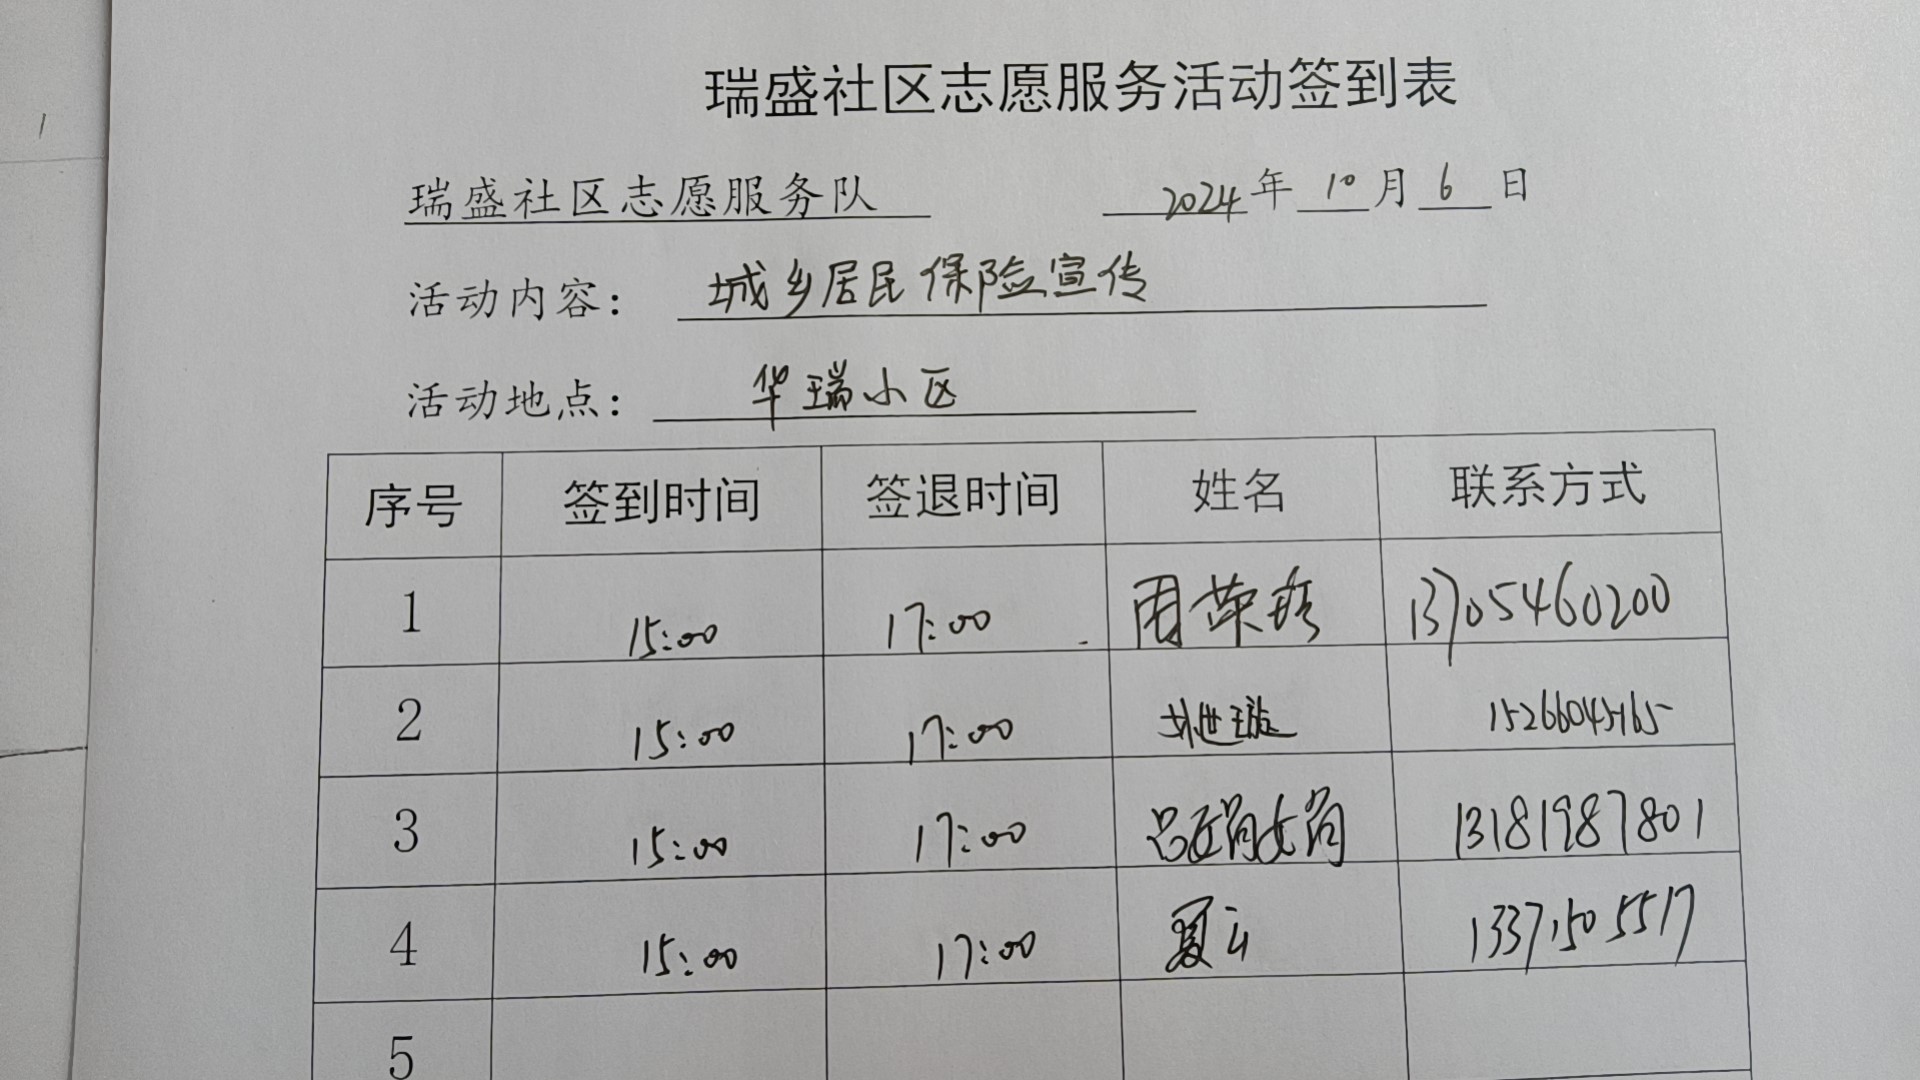 瑞盛社区志愿服务活动签到表
瑞盛社区志愿服务队 2024年 10月 6日
活动内容: 城乡居民保险宣传
活动地点: 华瑞小区
序号 签到时间 签退时间 姓名 联系方式
1 15:00 17:00 13705460200
2 15:00 17:00
3 15:00 17:00 13181987801
4 15:00 17:00 13371505517
5